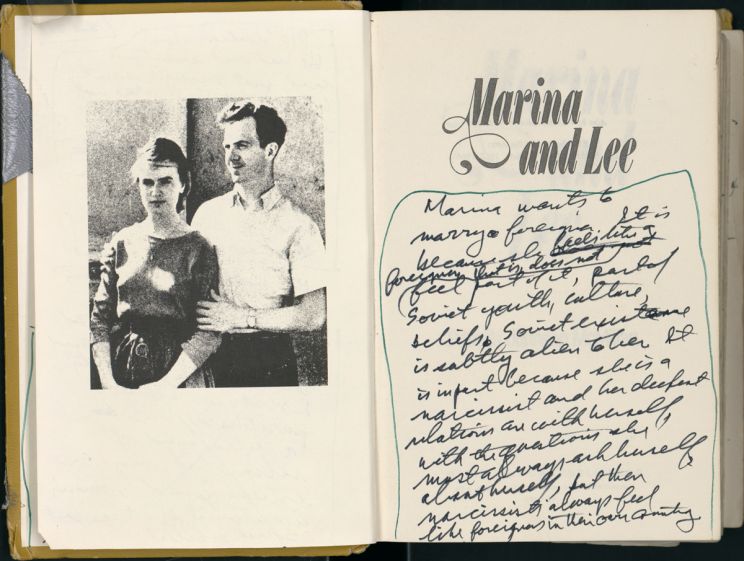 Marina
and Lee
Marina wants to
marry a foreigner. It is
because she feels like a
foreigner, that is does not
feel part of it, part of
Soviet youth, culture,
beliefs. Soviet existence
is subtly alien to her. It
is in part because she is a
narcissist and her deepest
relations are with herself,
with the questions she
must always ask herself
about herself, but then
narcissists always feel
like foreigners in their own country